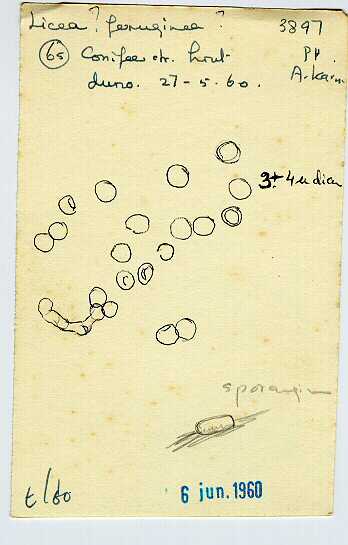 Licea ? ferruginea ? 3897
(65) Conifeer str. hout PH.
duno. 27-5-60. A.
3 ± 4 u diam
sporangium
t/60
6 jun. 1960